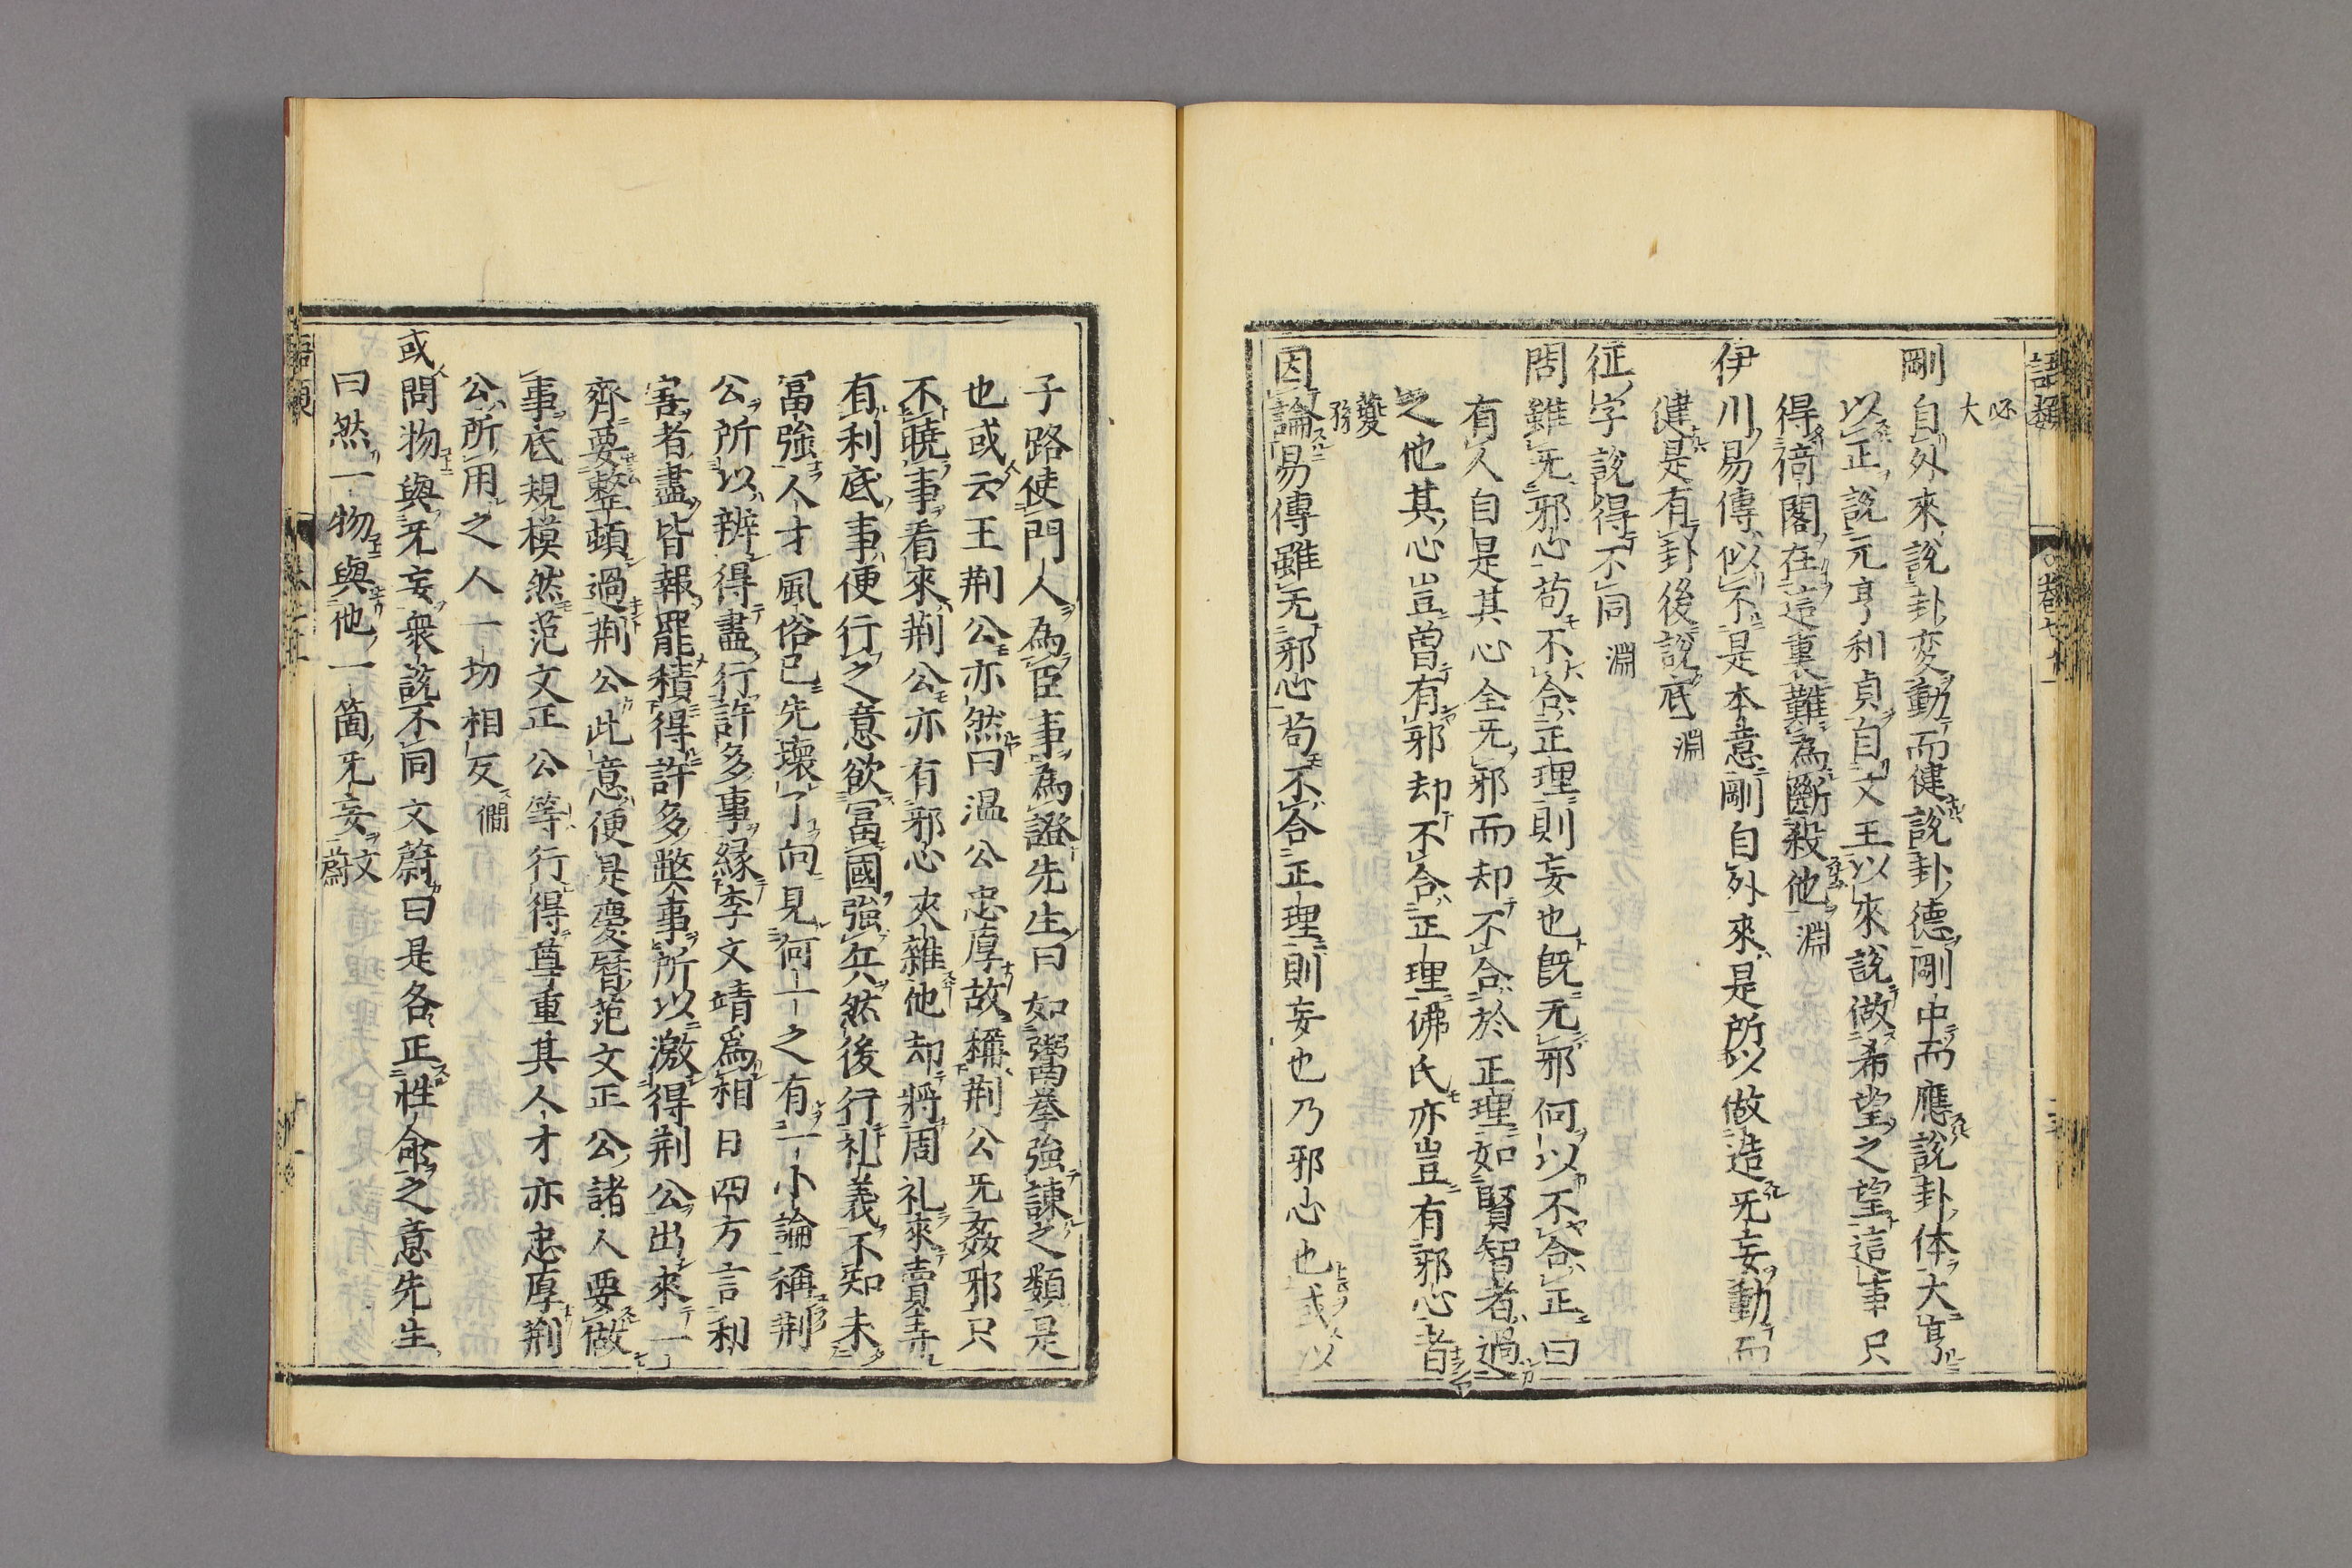 語類
卷七十一
必
大
剛自外來說卦変動而健說卦德剛中而應說卦体大亨
以正說元亨利貞自文王以來說做希望之望這事只
得倚閣在這裏難為斷殺他 淵
伊川易傳似不是本意剛自外來是所以做造无妄動而
健是有卦後說底 淵
征字說得不同 淵
問雖无邪心苟不合正理則妄也既无邪何以不合正曰
有人自是其心全无邪而却不合於正理如賢智者過
之他其心豈曾有邪却不合正理佛氏亦豈有邪心者
夔
孫
因論易傳雖无邪心苟不合正理則妄也乃邪心也或以
子路使門人為臣事為證先生曰如鬻拳強諫之類是
也或云王荆公亦然曰温公忠厚故稱荆公无姦邪只
不曉事看來荆公亦有邪心夾雜他却將周礼來賣弄
有利底事便行之意欲富國強兵然後行礼義不知未
富強人才風俗已先壞了向見何一之有一小論稱荆
公所以辨得盡行許多事緣李文靖爲相日四方言利
害者盡皆報罷積得許多弊事所以激得荆公出來一
齊要整頓過荆公此意便是慶曆范文正公諸人要做
事底規模然范文正公等行得尊重其人才亦忠厚荆
公所用之人一切相反 僩
或問物與无妄衆說不同文蔚曰是各正性命之意先生
曰然一物與他一箇无妄 文
蔚
語類